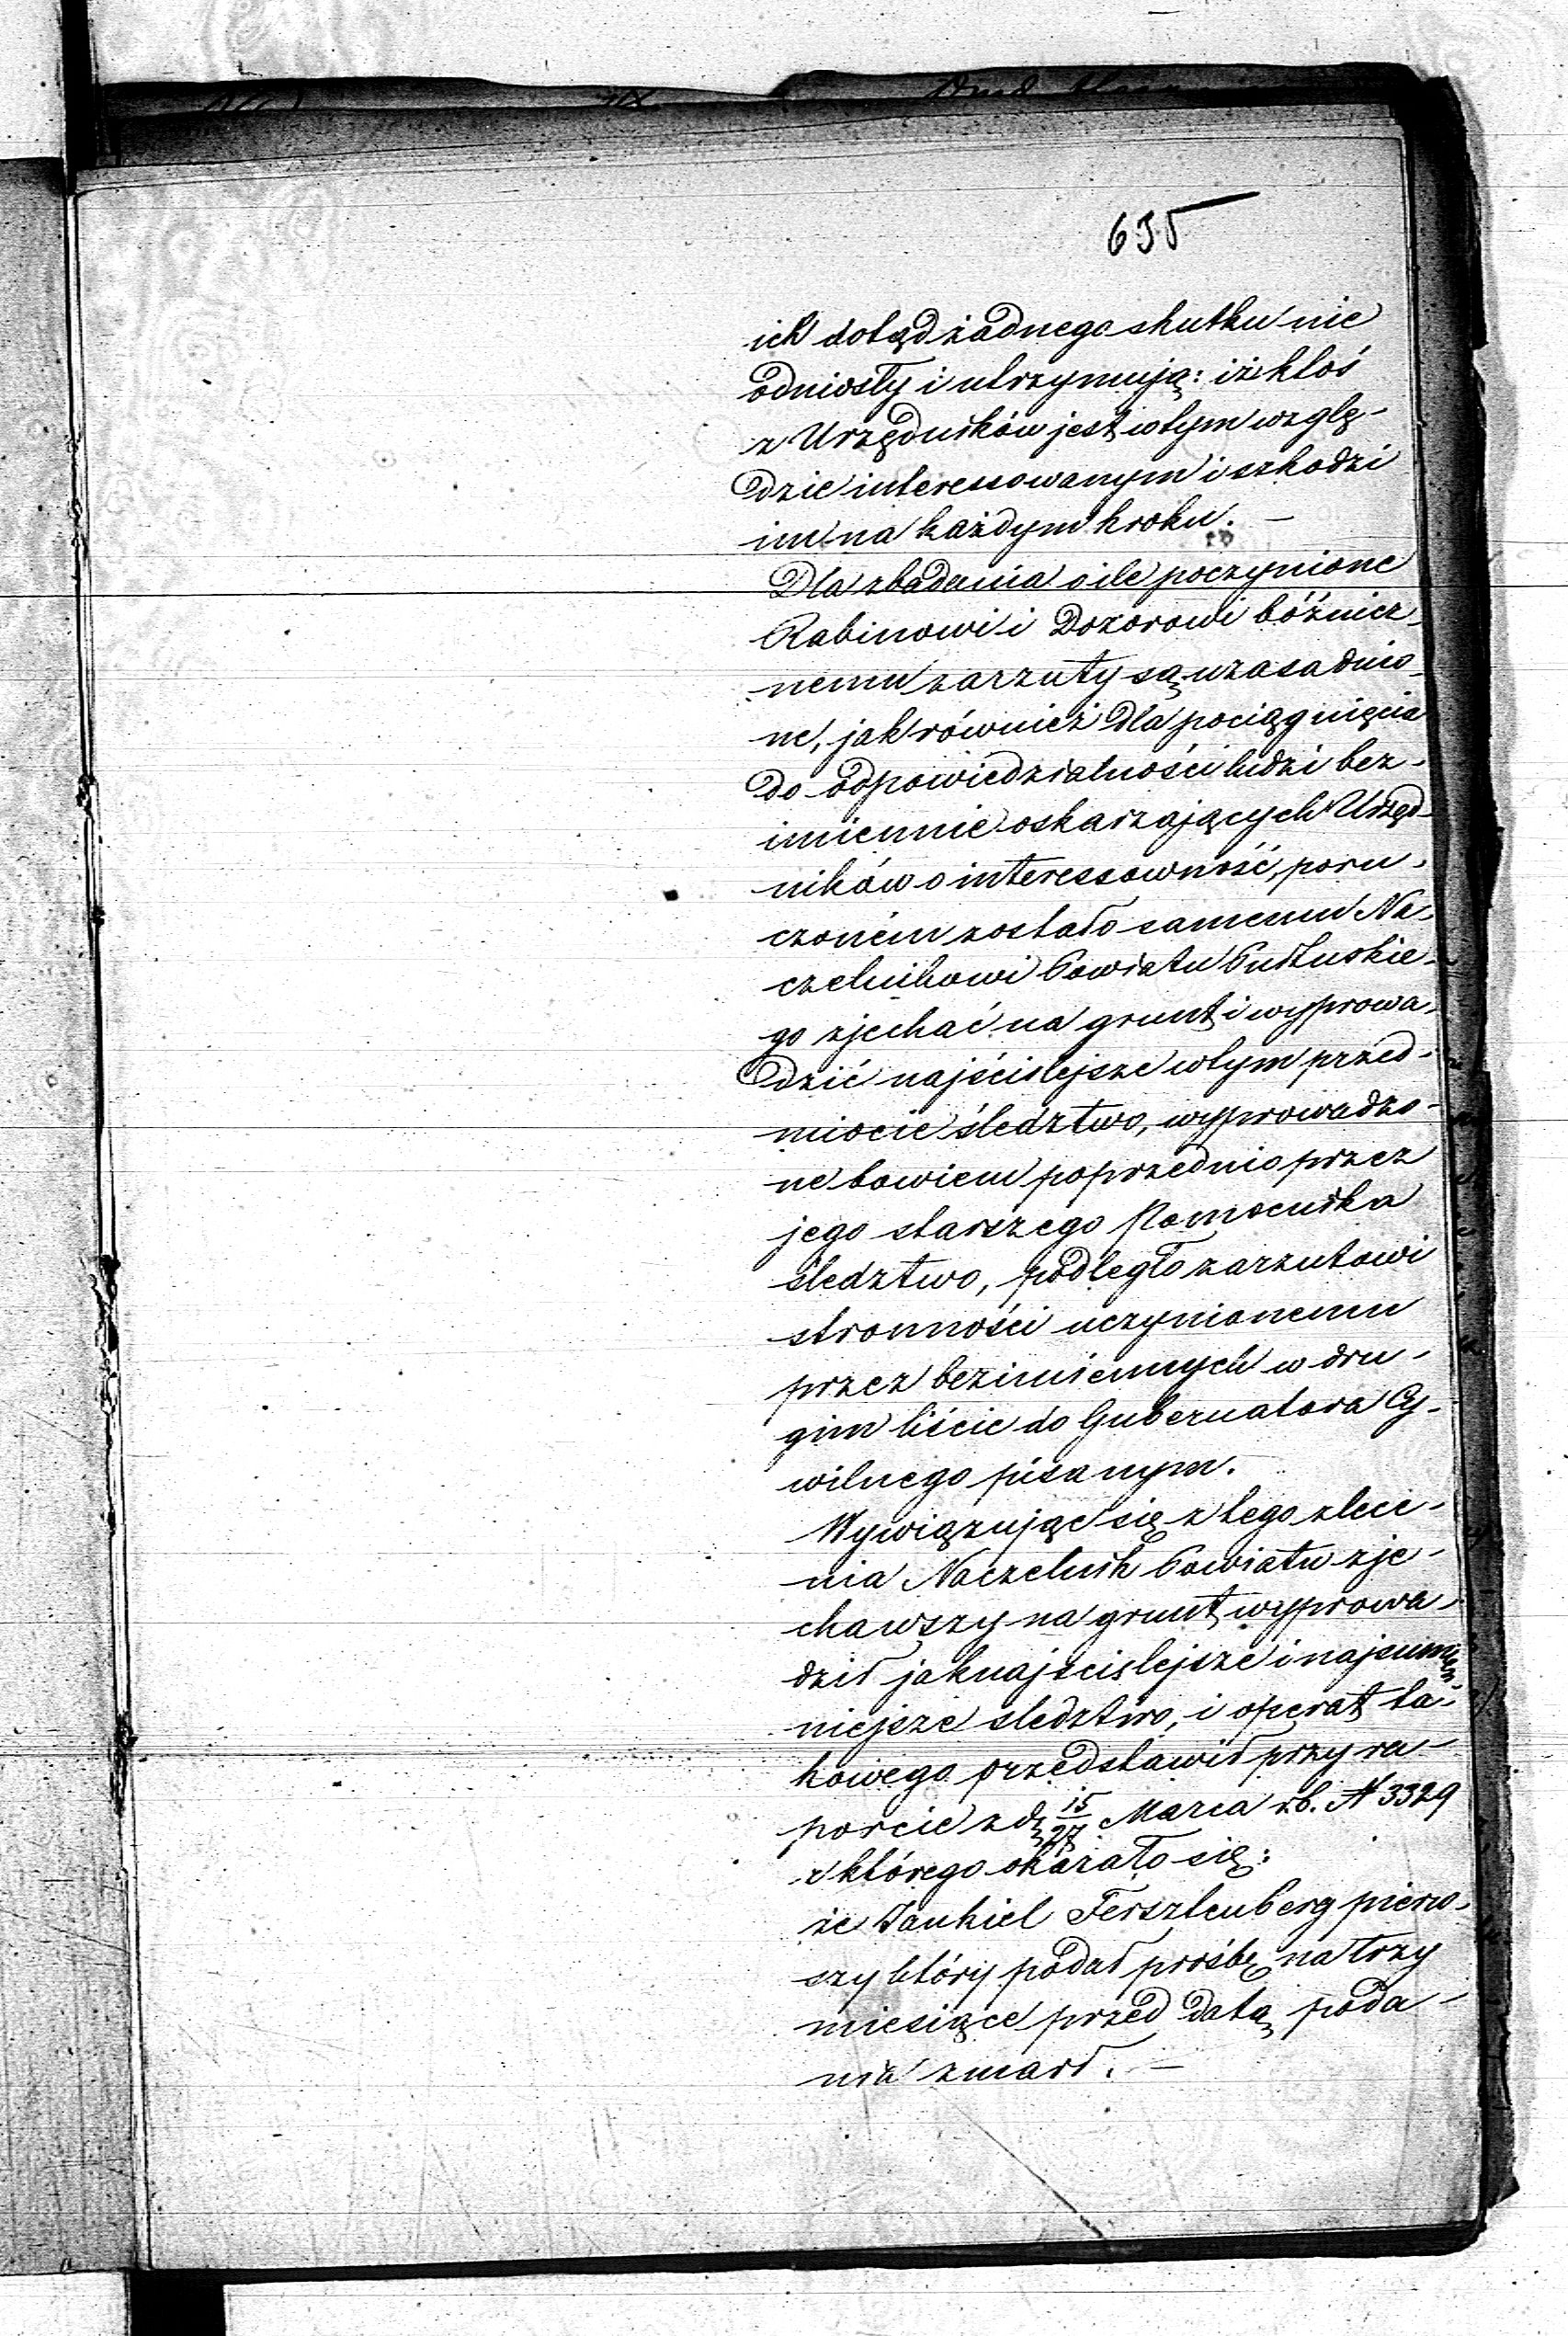 635
ich dotąd żadnego skutku nie
odniosły i utrzymują: iż ktoś
z Urzędników jest w tym wzglę-
dzie interessowanym i szkodzi
im na każdym kroku. —
Dla zbadania o ile poczynione
Rabinowi i Dozorowi bóżnicz-
nemu zarzuty są uzasadnio-
ne, jak również dla pociągnięcia
do odpowiedzialności ludzi bez-
imiennie oskarzających Urzęd-
ników o interessowność, poru-
czonem zostało samemu Na-
czelnikowi Powiatu Pułtuskie-
go zjechać na grunt i wyprowa-
dzić najściślejsze w tym przed-
miocie śledztwo, wyprowadzo-
ne bowiem poprzednio przez
jego starszego Pomocnika
śledztwo, podległo zarzutowi
stronności uczynionemu
przez bezimiennych w dru-
gim liście do Gubernatora Cy-
wilnego pisanym.
Wywiązując się z tego zlece-
nia Naczelnik Powiatu zje-
chawszy na grunt wyprowa-
dził jaknajściślejsze i najsumien
niejsze śledztwo, i operat ta-
kowego przedstawił przy ra-
porcie z d. 15/27 Marca rb. N 3329
z którego okazało się:
że Jankiel Fersztenberg pierw-
szy który podał prośbę na trzy
miesiące przed datą poda-
nia zmarł. —